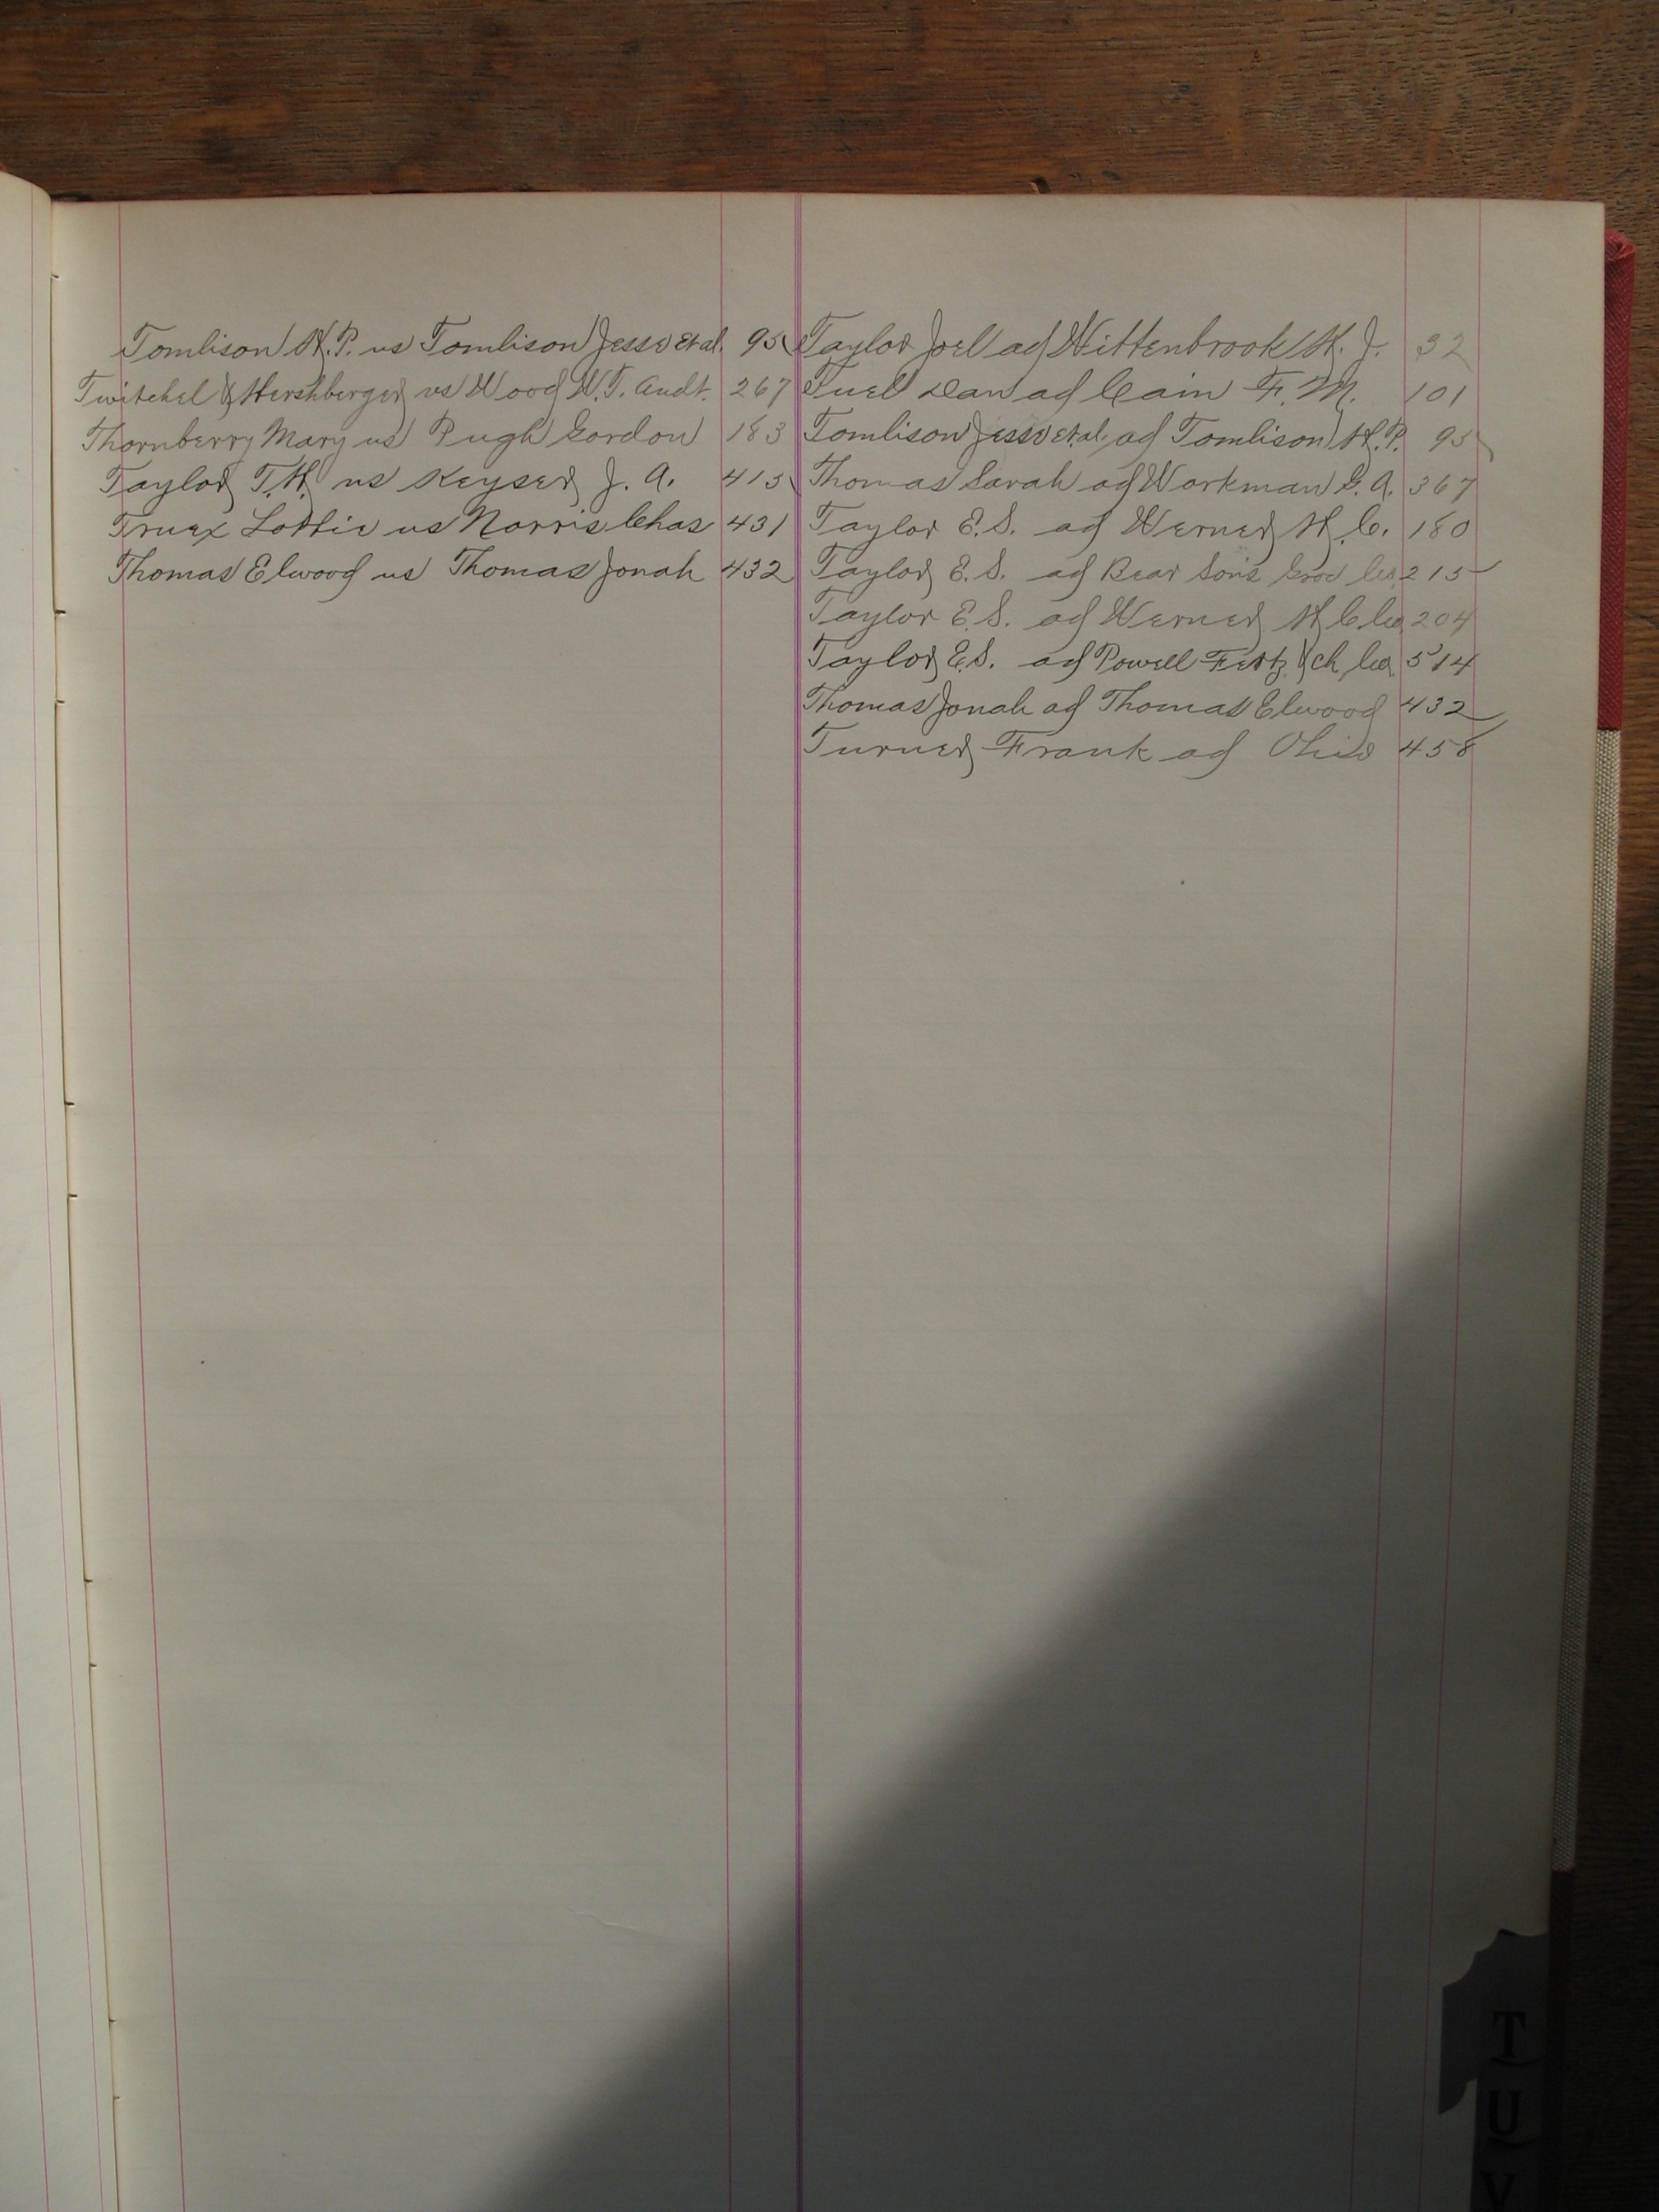 Tomlison H.P. vs Tomlison Jesse et al. 95
Twitchel & Hershberger vs Wood W.T. Audt. 267
Thornberry Mary vs Pugh Gordon 183
Taylor T.H. vs Keyser J. A. 415
Truex Lottie vs Norris Chas 431
Thomas Elwood vs Thomas Jonah 432
Taylor Joel ad Wittenbrook H. J. 32
Tuel Dan ad Cain F. M. 101
Tomlison Jesse et al. ad Tomlison H.P. 95
Thomas Sarah ad Workman G. A. 367
Taylor E.S. ad Werner H. C. 180
Taylor E.S. ad Bear Sons Groc Co 215
Taylor E.S. ad Werner H C Co 204
Taylor E.S. ad Powell Co 514
Thomas Jonah ad Thomas Elwood 432
Turner Frank ad Ohio 458
T
U
V